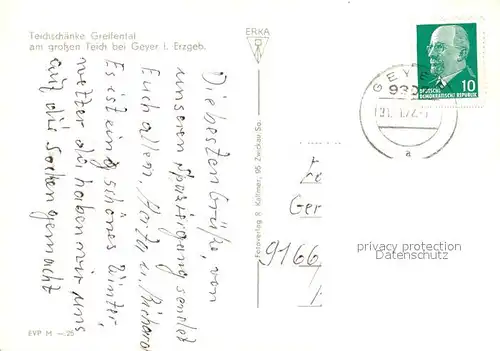 Teichschänke Greifental
am großen Teich bei Geyer i. Erzgeb.
ERKA
DEUTSCHE
DEMOKRATISCHE REPUBLIK
10
GEYE
930
a
Die besten Grüße, von
unserem Spaziergang sendet
Euch allen, Herta u. Richard
Es ist ein schönes Winter,
wetter da haben wir uns
auf die Socken gemacht
Fotoverlag R. Kallmer, 95 Zwickau Sa.
Ger
9166
privacy protection
Datenschutz
EVP M —.25